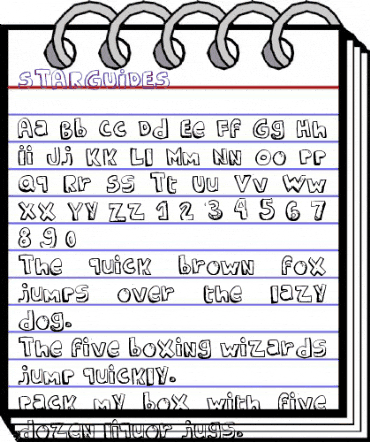 STARGUiDES
Aa Bb Cc Dd Ee Ff Gg Hh
ii Jj KK Ll Mm NN Oo PP
aq Rr SS Tt Uu Vv Ww
XX YY ZZ 1 2 3 4 5 6 7
8 9 0
The quick brown fox
jumps over the lazy
dog.
The five boxing wizards
jump quickly.
pack my box with five
dozen liquor jugs.